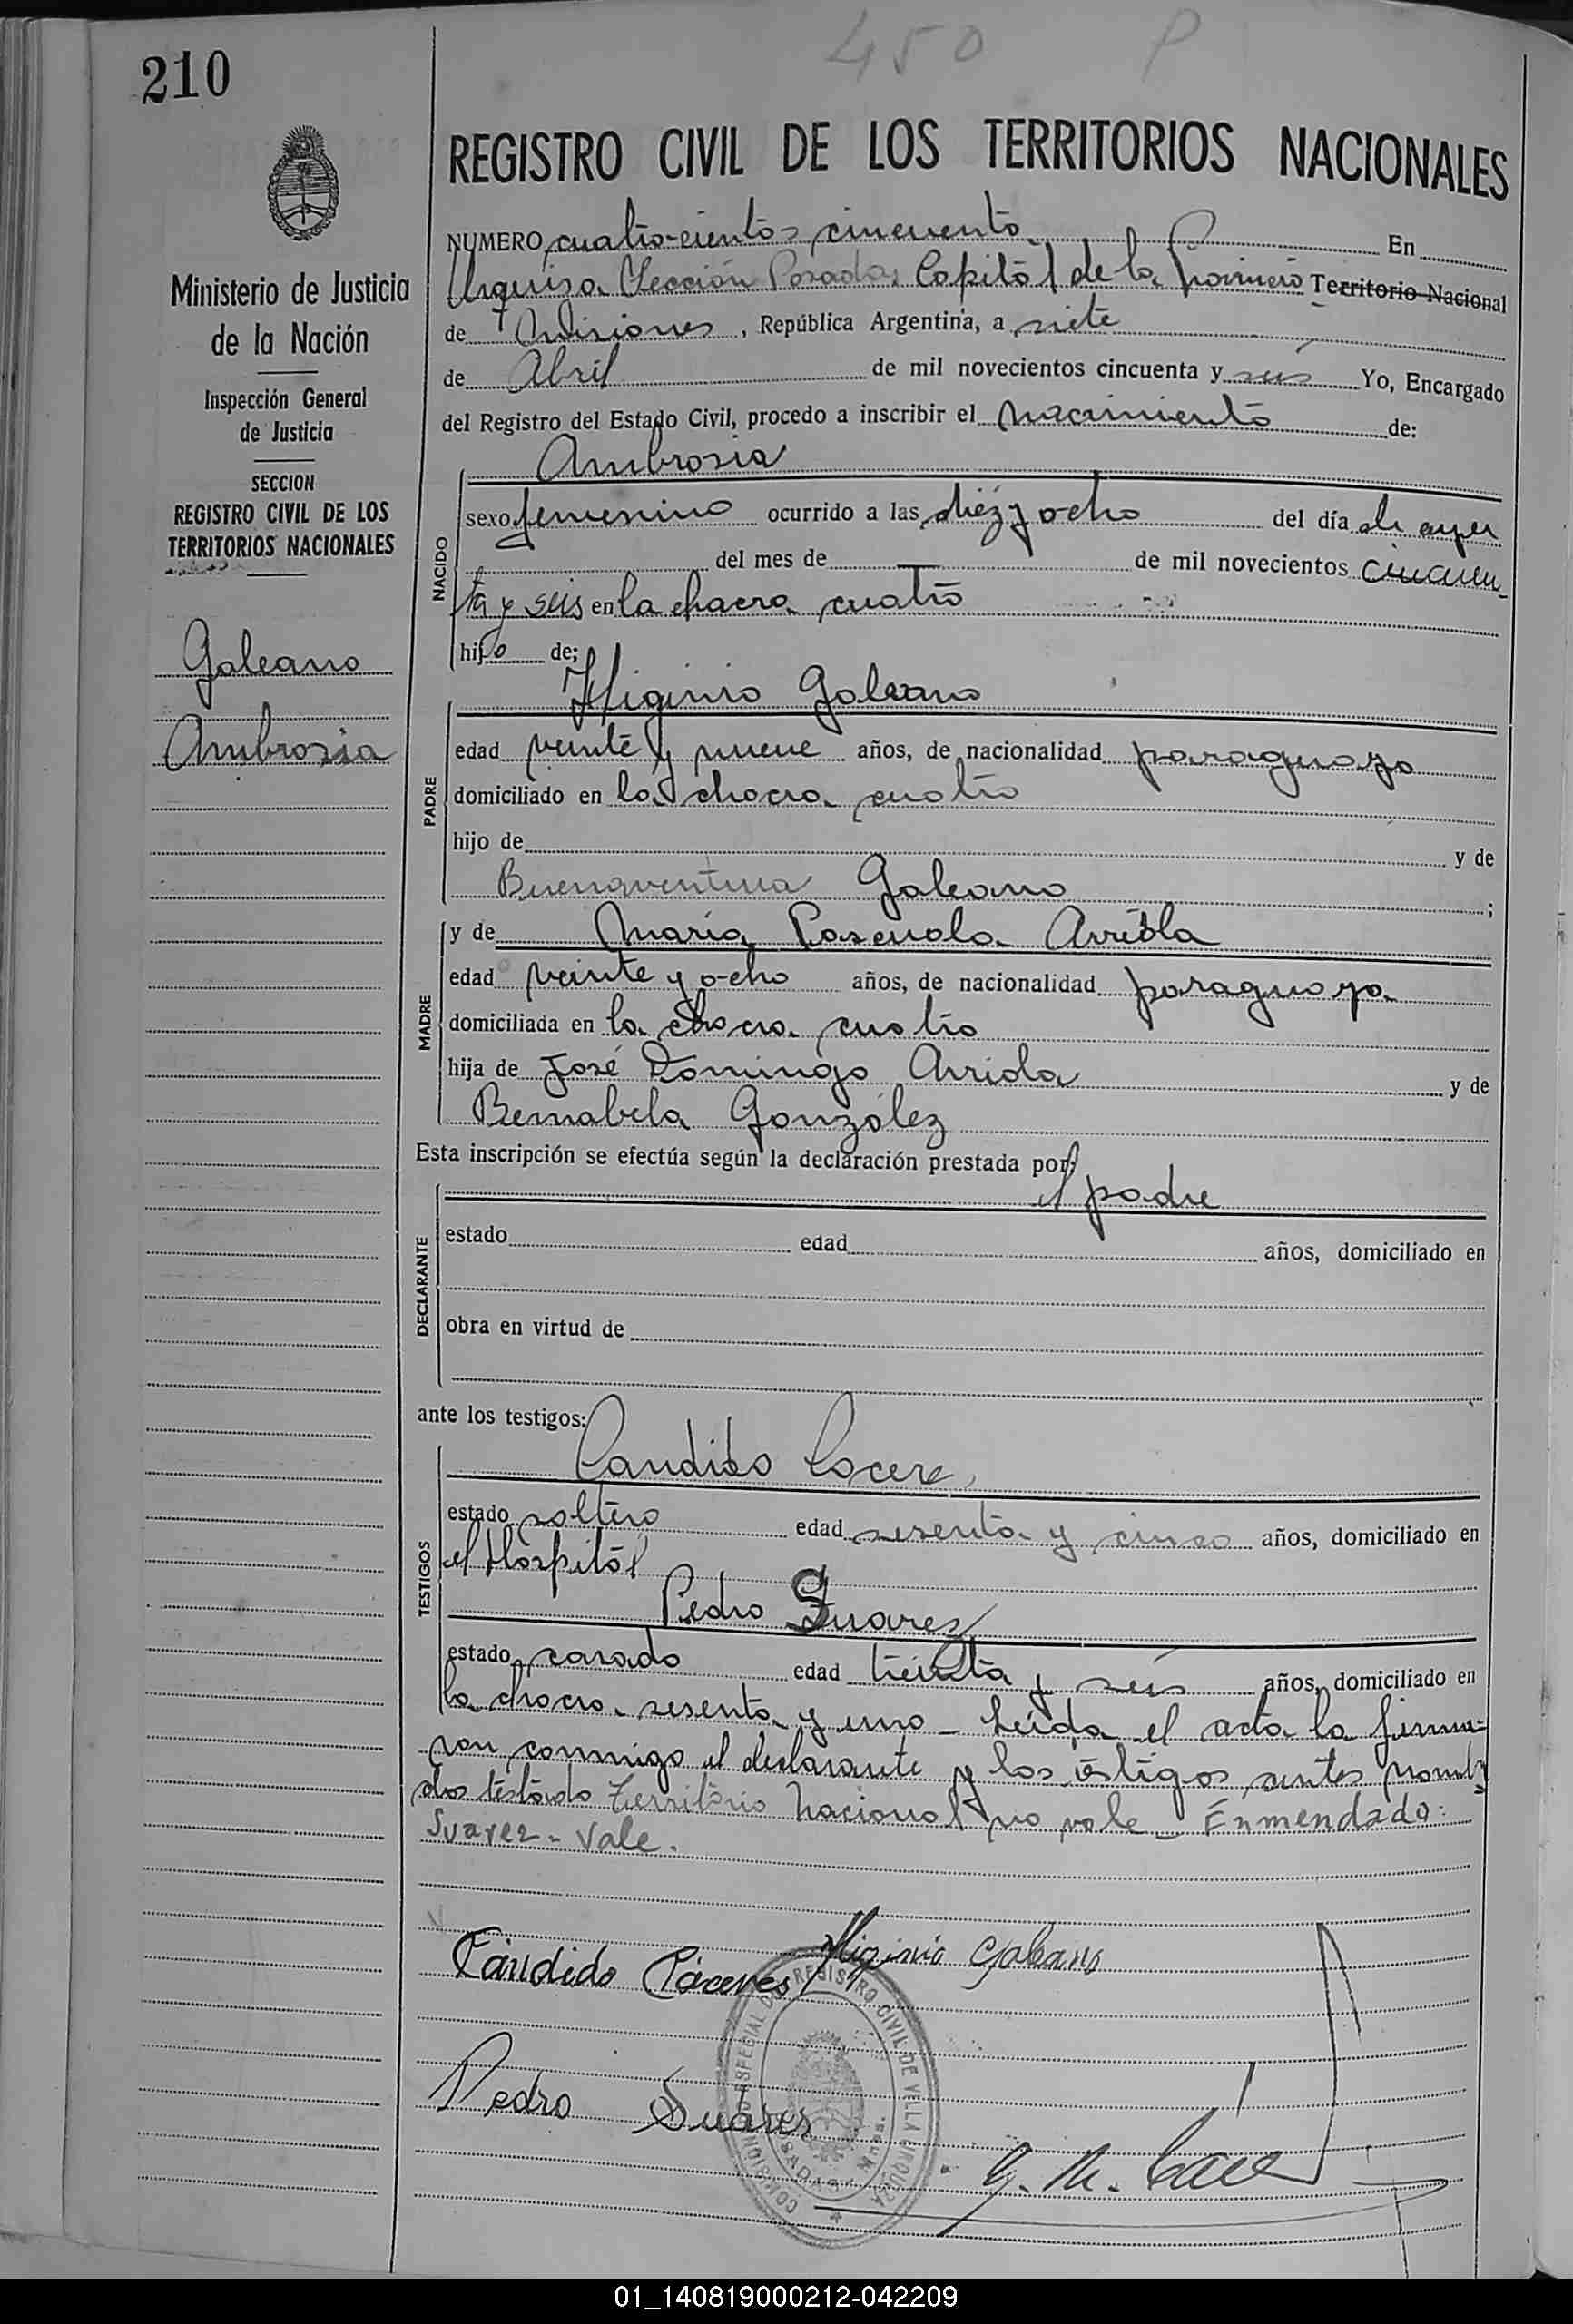 450 P
210
REGISTRO CIVIL DE LOS TERRITORIOS NACIONALES
Ministerio de Justicia
de la Nación
Inspección General
de Justicia
SECCION
REGISTRO CIVIL DE LOS
TERRITORIOS NACIONALES
Galeano
Ambrosia
NUMERO cuatro-cientos cincuenta En
Urquiza Sección Posadas Capital de la Provincia Territorio Nacional
de Misiones, República Argentina, a siete
de Abril de mil novecientos cincuenta y seis Yo, Encargado
del Registro del Estado Civil, procedo a inscribir el nacimiento de:
Ambrosia
NACIDO
sexo femenino ocurrido a las diez y ocho del día de ayer
del mes de de mil novecientos cincuen
ta y seis en la chacra cuatro
hijo de:
Higinio Galeano
PADRE
edad veinte y nueve años, de nacionalidad paraguayo
domiciliado en la chacra cuatro
hijo de y de
Buenaventura Galeano ;
MADRE
y de María Pascuala Arriola
edad veinte y ocho años, de nacionalidad paraguaya
domiciliada en la chacra cuatro
hija de José Domingo Arriola y de
Bernabela González
Esta inscripción se efectúa según la declaración prestada por:
el padre
DECLARANTE
estado edad años, domiciliado en
obra en virtud de
ante los testigos:
TESTIGOS
Candido Cocere
estado soltero edad sesenta y cinco años, domiciliado en
el Hospital
Pedro Suarez
estado casado edad treinta y seis años, domiciliado en
la chacra sesenta y uno - Leida el acta la firma-
ron conmigo el declarante y los testigos antes nombra
dos testado Territorio Nacional no vale - Enmendado:
Suarez - Vale.
Higinio Galeano
Cándido Cáceres
Pedro Suárez
COMISION ESPECIAL DEL REGISTRO CIVIL DE VILLA URQUIZA
POSADAS Mnes.
01_140819000212-042209